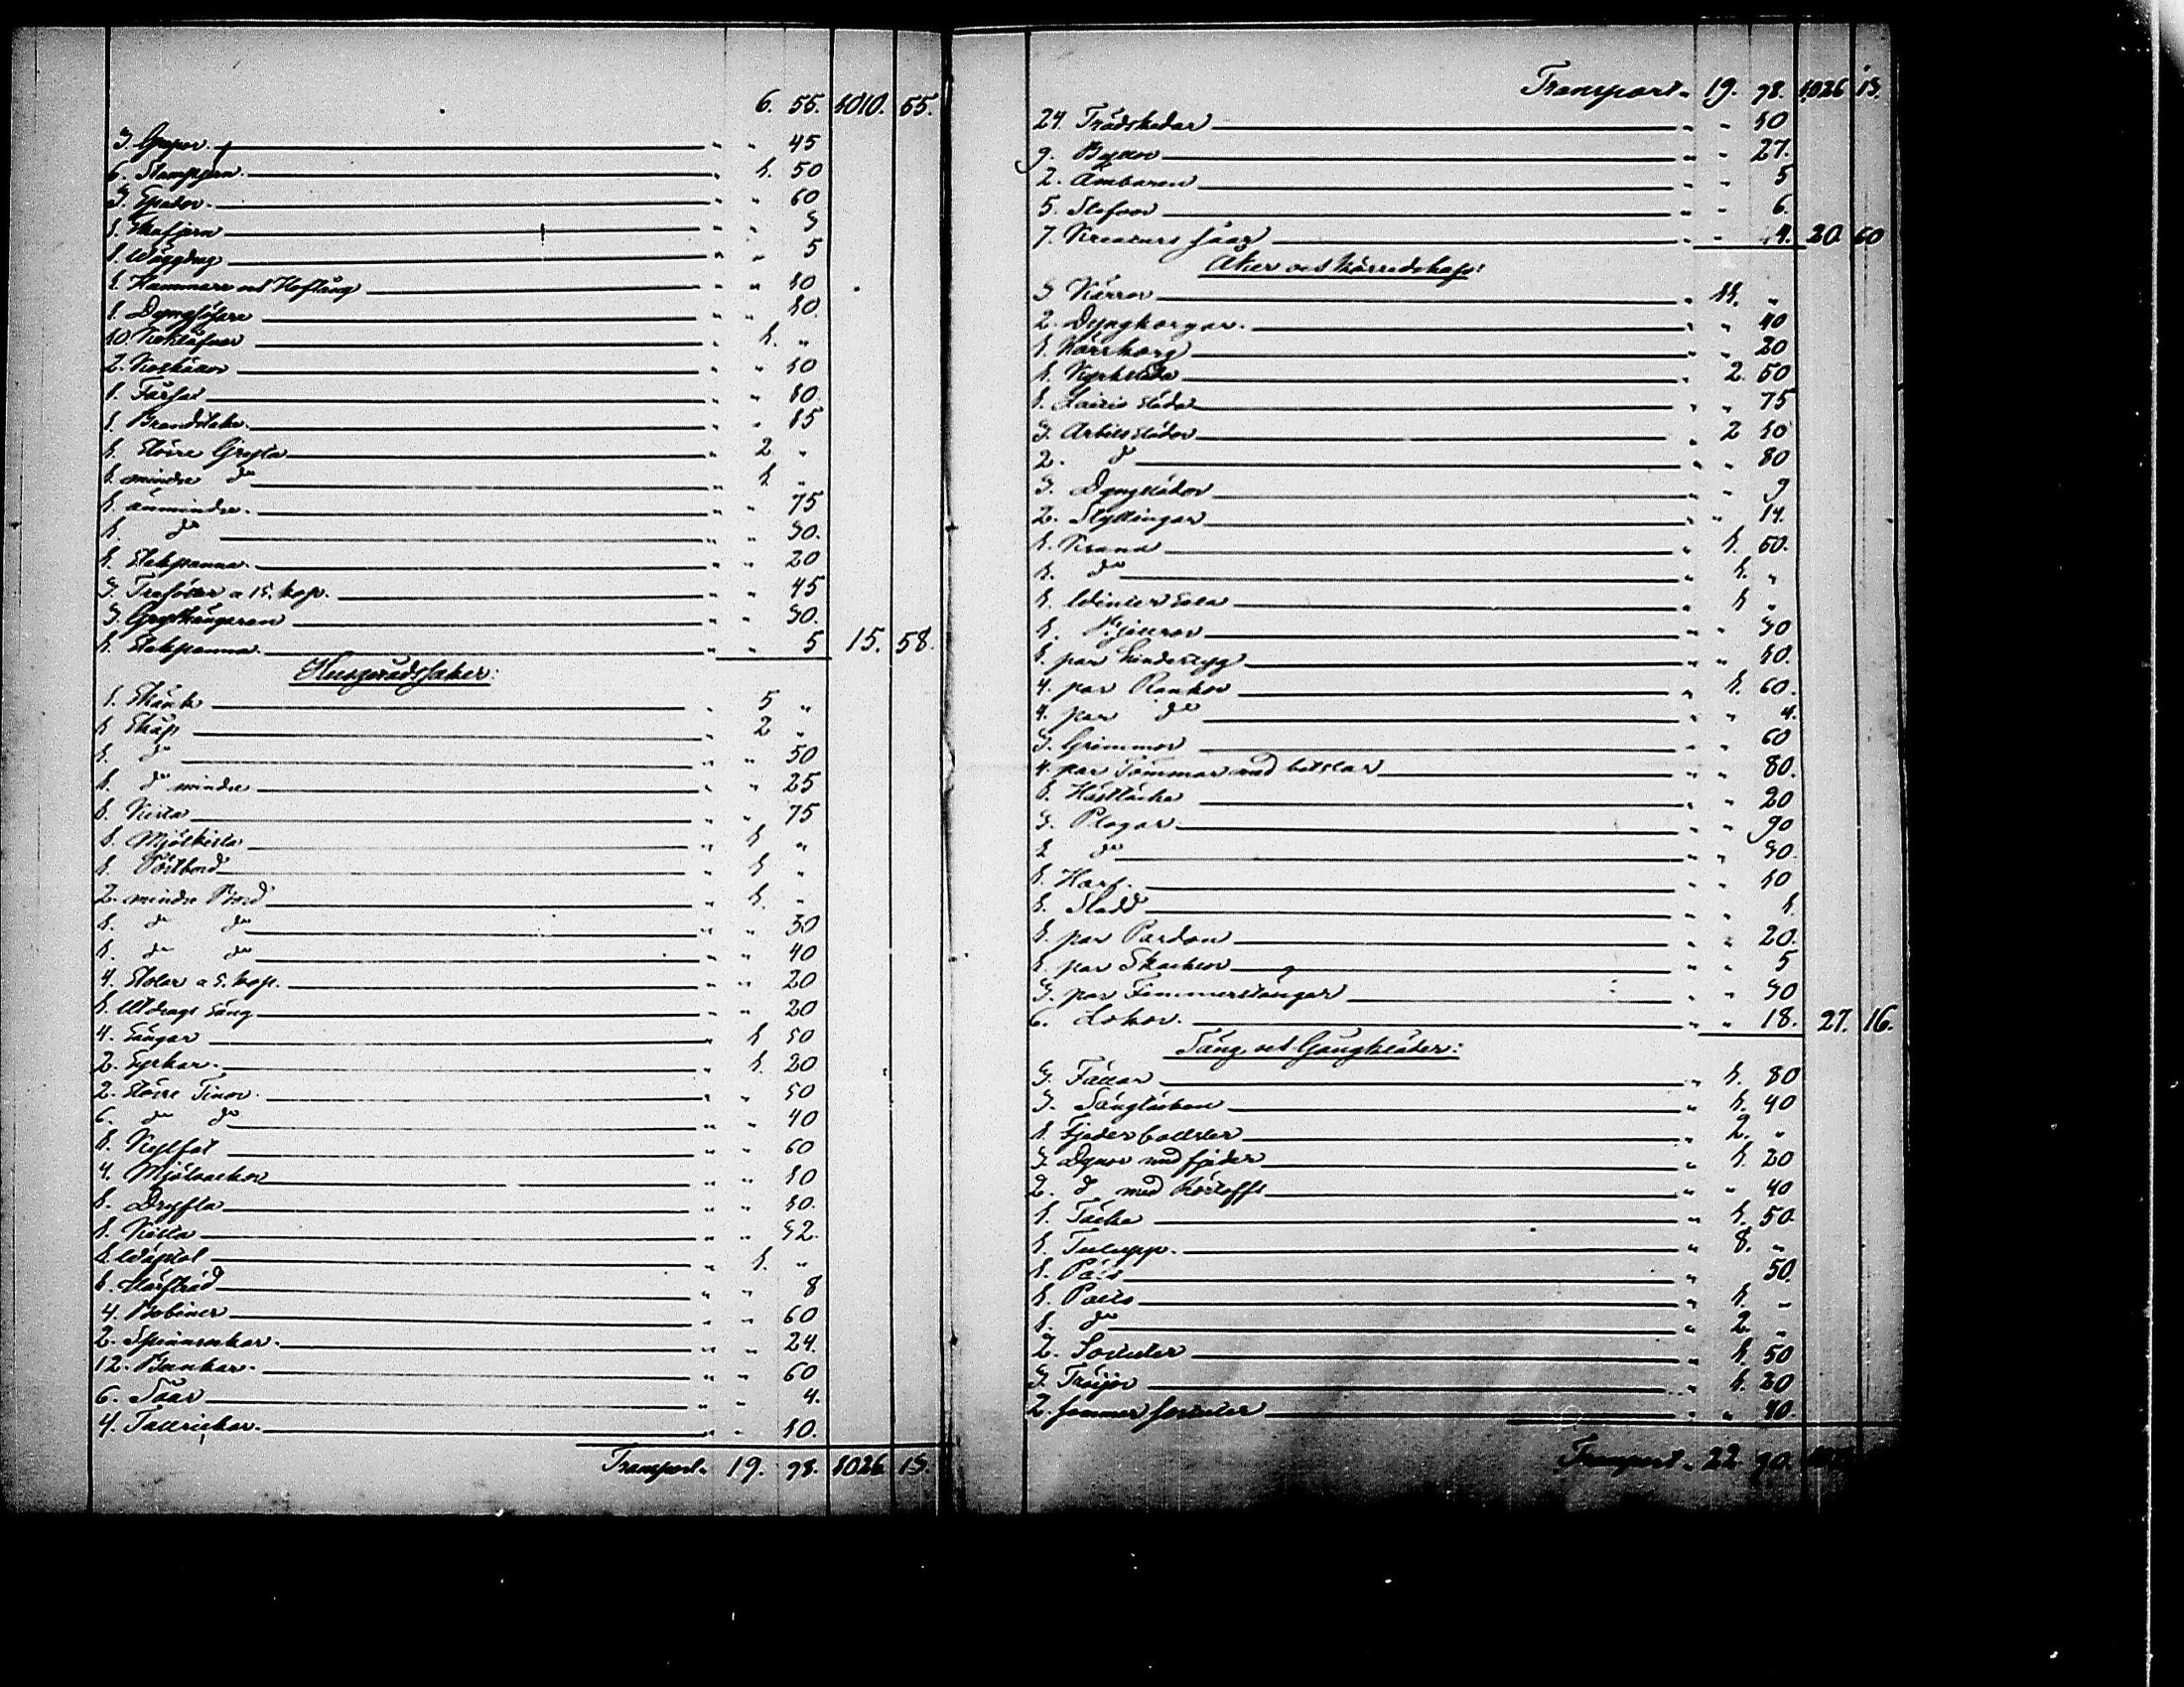 6. 55. 1010. 55.
3. Grepar. " " 45
6. Stampjern. " 1. 50
3. Spador. " " 60
1. Skafjern " " 3
1. Wäggdrag " " 5
1. Hammare och Hoftång " " 10
1. Dynghötare " " 10.
10. Koklafvar " 1. "
2. Koskällor " " 10
1. Färsax " " 10.
1. Brandstake. " " 15
1. Större Gryta " 2 "
1. mindre do " 1 "
1. änmindre. " " 75
1. do " " 30.
1. Stekpanna. " " 20
3. Trefötter a 15. kop. " " 45
3. Grythängaren " " 30.
1. Stekpanna. " " 5 15. 58.
Husgerådssaker:
1. Skänk " 5 "
1 Skåp " 2 "
1. do " " 50
1. do mindre " " 25
1. Kista " " 75
1. Mjölkista " 1 "
1. Bord " 1 "
2. mindre Bord " 1. "
1. do do " " 30
1. do do " " 40
4. Stolar a 5. kop. " " 20
1. Utdrags Säng " " 20
4. Sängar " 1 50
2. Byrkar. " 1. 20
2. större Tinor. " " 50
6. do do " " 40
1. Kylfat " " 60
4. Mjölsäckar " " 10
1. Dryfta " " 10.
1. Kista " " 32.
1. Wäfstol " 1. "
1. Härfträd " " 8
4. Bobiner " " 60
2. Spinnrockar. " " 24.
12. Bunkar. " " 60
6. Såar " " 4.
4. Tallrickar. " " 10.
Transport. 19. 98. 1026 13.
Transport. 19. 98. 1026 13.
24. Trädskedar " " 10
9. Byttor " " 27.
2. Ämbaren " " 5
5. Stefvor " " 6.
7. Kreaturs såar " " 4. 20. 60
Åker och Körredskap:
3 Kärror " 11. "
2. Dyngkorgar. " " 40
1. Körrkorg " " 20
1. Kyrksläde " 2. 50
1. släde " " 75
3. Arbets slädor " 2 10
2. do " " 80
3. Dyngslädor " " 9
2. Slyttingar " " 14.
1. Krana " 1. 50.
1. do " 1. "
1. Winter Sela " 1 "
1. " " 30
1. par Lindertyg " " 10.
4. par Rankor " 1. 60.
4. par do " " 4.
3. Grimmor " " 60
4. par Tömmar med betslar " " 80.
1. Hästtäcke " " 20
3. Plogar " " 90
1 do " " 30.
1. Harf. " " 10
1. Sladd " " 1.
1. par Pardon " " 20.
1. par Skacklor " " 5
3. par Timmerstänger " " 30
6. Lokor. " " 18. 27. 16.
Säng och Gångkläder:
3. Fällar " 1. 80
3. Sängtäcken " 1. 40
1. Fjederbollster " 2. "
3. Dynor med fjäder " 1. 20
2. do med " " 40
1. Täcke " 1. 50.
1. Tulupp. " 8. "
1. Päls " 50.
1. Palto " 1. "
1. do " 2. "
2. Sortuter " 1. 50
3. Tröijor " 1. 20
2. sommar sortuter " " 40.
Transport. 22. 90.